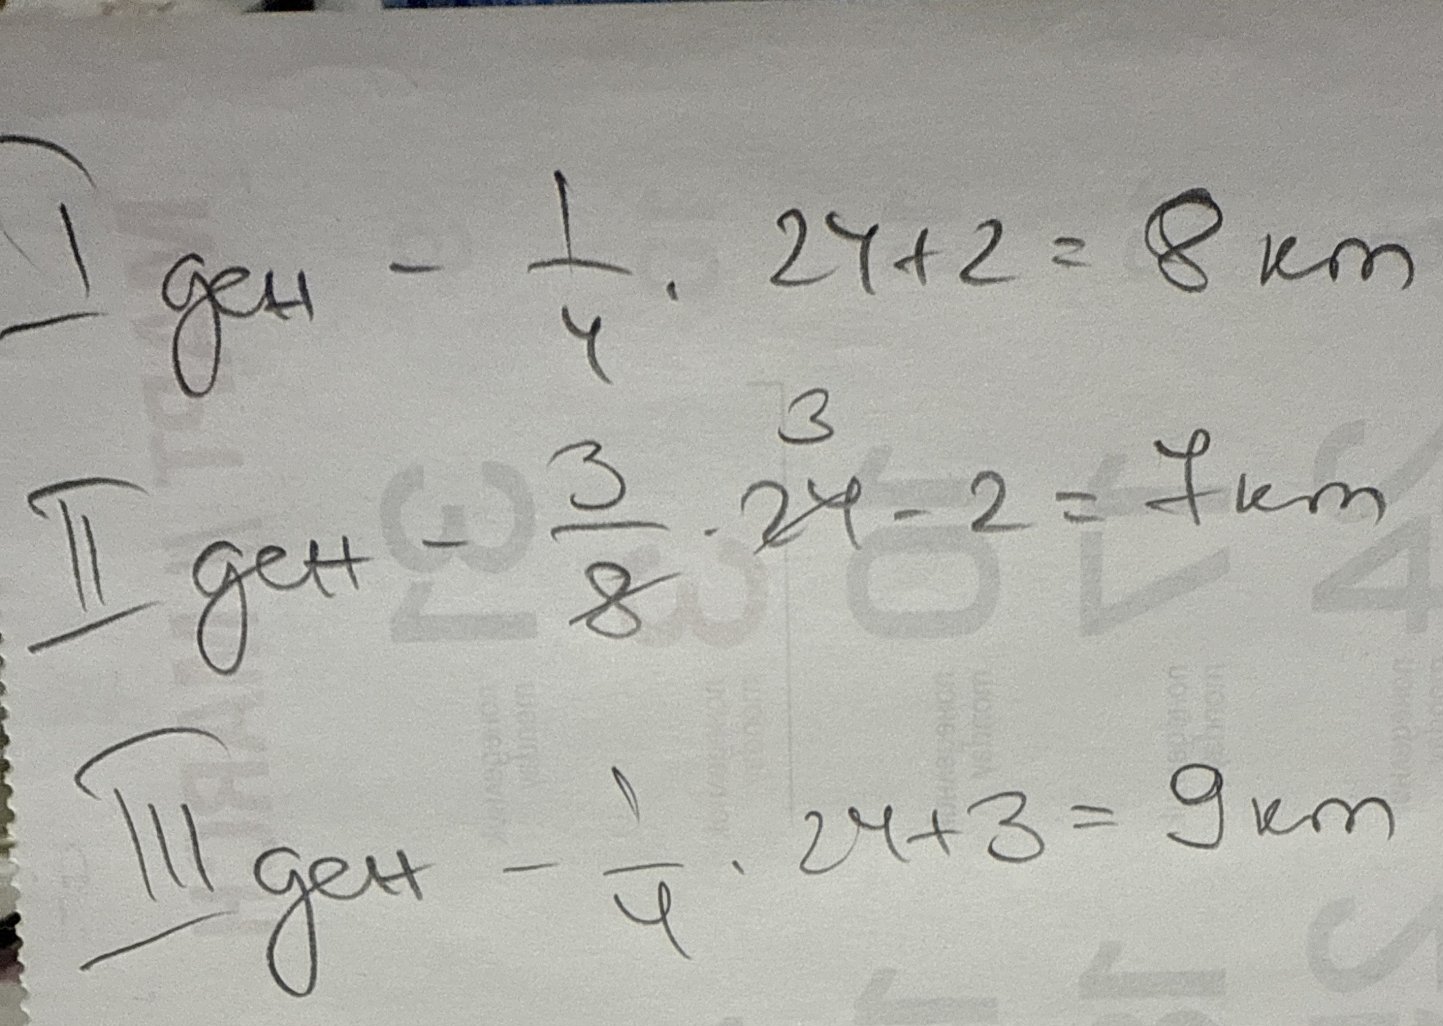 I ден - 1/4 . 24+2 = 8 km
II ден - 3/8 . 24 3 - 2 = 7 km
III ден - 1/4 . 24+3 = 9 km